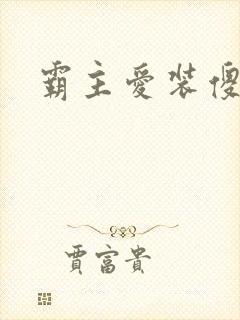 霸主愛裝傻
賈富貴